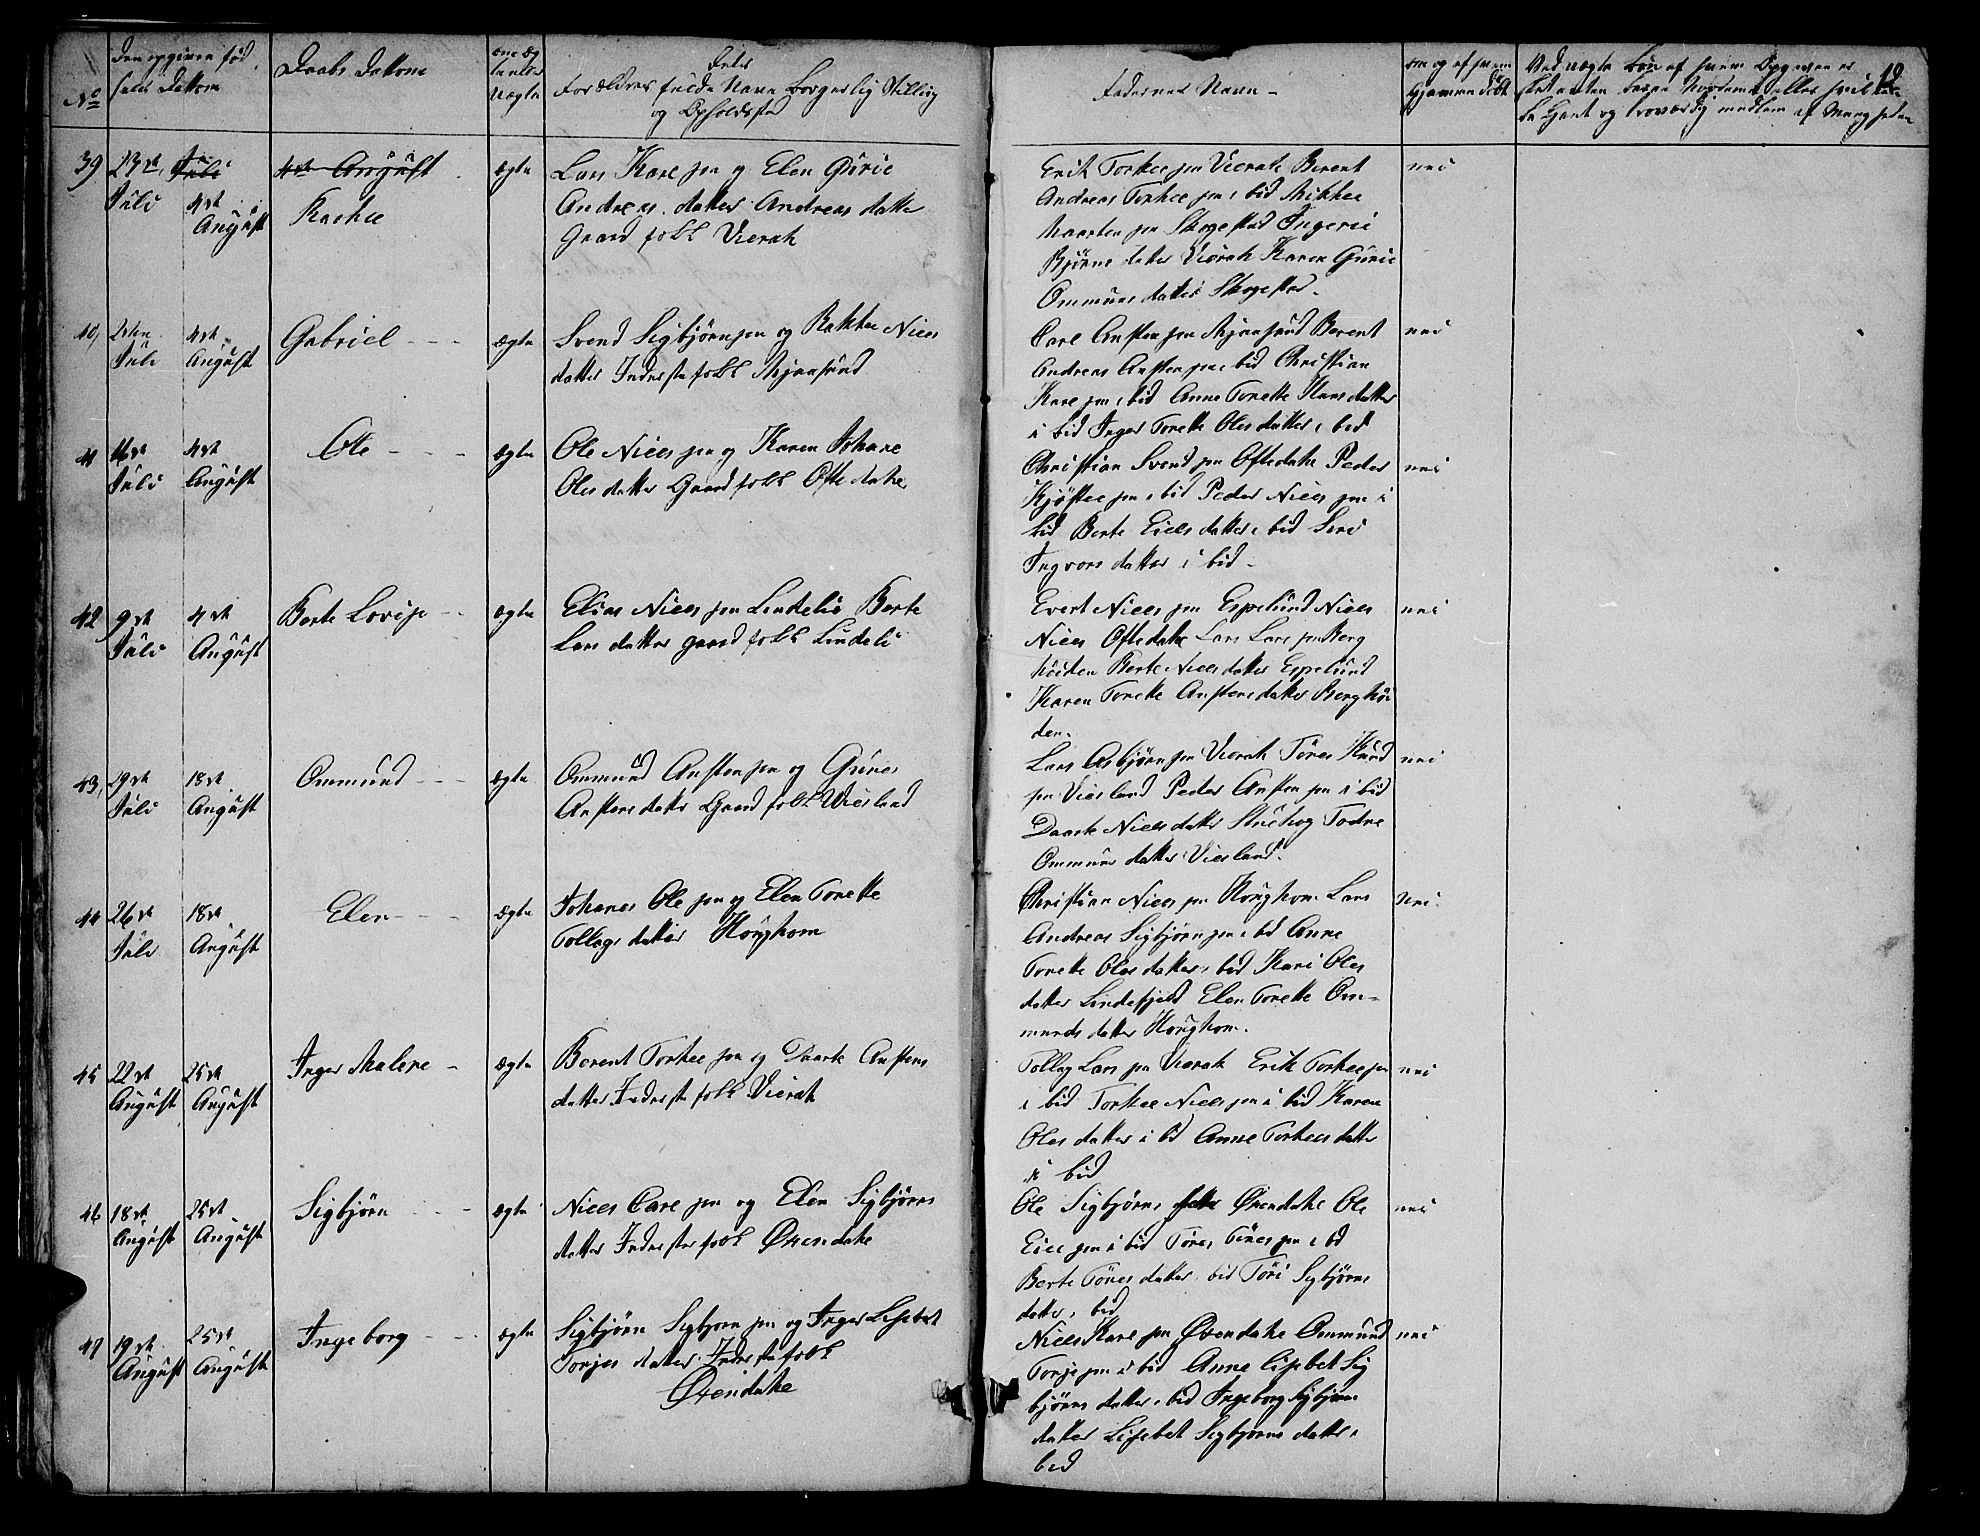 No
den opgiven fød
sels Dattom
Daabs Dattom
om æg
te eller
Uægte
Forældres fulde Navn Borgerlig Stilling
og Opholdsted
Faderens Navn
om og af
hjemmedøbt
10
39 23de Juli
Juli 4de August
4de August
Rachel
ægte
Lars Karlsen og Elen Gurie
Andreas datter Andreas datter
Gaardfolk Vierak
Erik Torkelsen Vierak Berent
Andreas Torkelsen i bid Mikkel
Maartensen Skogestad Ingeri
Bjørns datter Vierak Karen Gurie
Ommunds datter Skogestad
nei
40, Juli
4de August
Gabriel
ægte
Svend Sigbjørnsen og Rakkel Niels
datter Inderstefolk Mjaasund
Carl Anstensen Mjaasund Berent
Andreas Anstensen i bid Christian
Karlsen i bid Anne Torette Hansdatter
i bid Inger Torette Olesdatter i bid
nei
41 16de Juli
4de August
Ole
ægte
Ole Nielssen og Karen Johane
Olesdatter Gaardfolk Oftedahl
Christian Svendsen Oftedahl Peder
Kjøstelsen i bid Peder Nielssen i
bid Berte Eielsdatter i bid Siri
Ingvors datter i bid
nei
42 9de Juli
4de August
Berte Lovise
ægte
Elias Nielssen Lindeli Berte
Lars datter gaardfolk Lindeli
Evert Nielssen Espelund Niels
Niels Oftedahl Lars Larssen Berg
høiden Berte Nielsdatter Espelund
Karen Torette Anstensdatter Berghøi
den
nei
43, 29de Juli
18de August
Ommund
ægte
Ommund Anstensen og Guner
Anstensdatter Gaardfolk Viesland
Lars Asbjørnsen Vierak Tøres Knud
sen Viesland Peder Anstensen i bid
Daarte Nielsdatter Todne
Ommunds datter Viesland
nei
44 26de Juli
18de August
Elen
ægte
Johanes Olesen og Elen Torette
Tollags datter Houghom
Christian Nielssen Houghom Lars
Andreas Sigbjørnsen i bd Anne
Torette Olesdatter i bid Kari Oles
datter Lindefjeld Elen Torette Om=
munds datter Houghom
nei
45 22de August
25de August
Inger Malene
ægte
Berent Torkelsen og Daarte Anstens
datter Inderstefolk Vierak
Tollag Larssen Vierak Erik Torkelsen
i bid Torkel Nielssen i bid Karen
Olesdatter i bd Anne Torkelsdatter
i bid
nei
46 18de August
25de August
Sigbjørn
ægte
Niels Carlsen og Elen Sigbjørns
datter Inderstefolk Øxendahl
Ole Sigbjørns Øxendahl Ole
Eielsen i bid Tøres Tøressen i bd
Berte Tøresdatter i bid Tøri Sigbjørns
datter i bid
nei
47 19de August
25de August
Ingeborg
ægte
Sigbjørn Sigbjørnsen og Inger Lisebet
Torjes datter Inderstefolk
Øxendahl
Niels Karlsen Øxendahl Ommund
Torjesen i bid Anne Lisebet Sig
bjørns datter i bid Ingeborg Sigbjørns
datter Lisebet Sigbjørns datter i
bid
nei